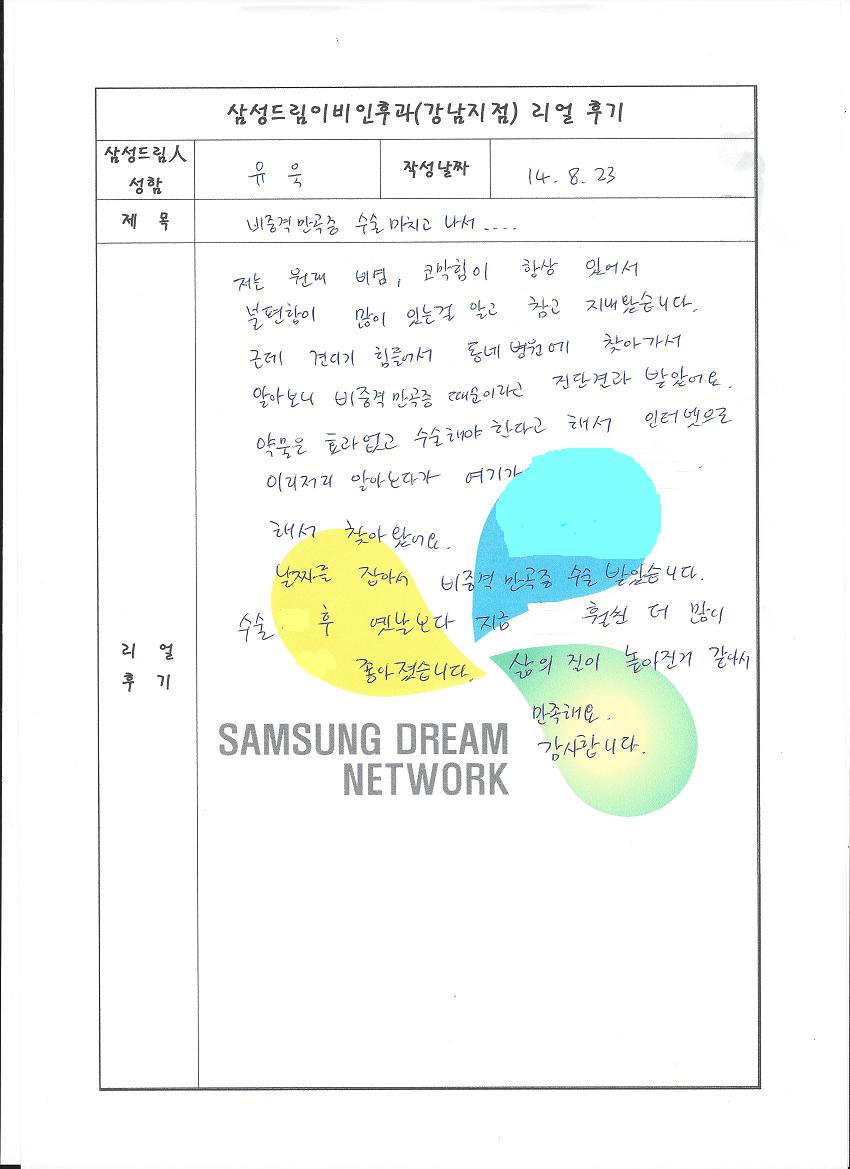 삼성드림이비인후과(강남지점) 리얼 후기
삼성드림人 성함
유 욱
작성날짜
14. 8. 23
제 목
비중격만곡증 수술 마치고 나서....
리 얼
후 기
저는 원래 비염, 코막힘이 항상 있어서
불편함이 많이 있는걸 알고 참고 지내왔습니다.
근데 견디기 힘들어서 동네병원에 찾아가서
알아보니 비중격만곡증 때문이라고 진단결과 받았어요.
약물은 효과없고 수술해야 한다고 해서 인터넷으로
이리저리 알아보다가 여기가
해서 찾아왔어요.
날짜를 잡아서 비중격만곡증 수술 받았습니다.
수술 후 옛날보다 지금 훨씬 더 많이
좋아졌습니다. 삶의 질이 높아진거 같아서
만족해요.
감사합니다.
SAMSUNG DREAM
NETWORK